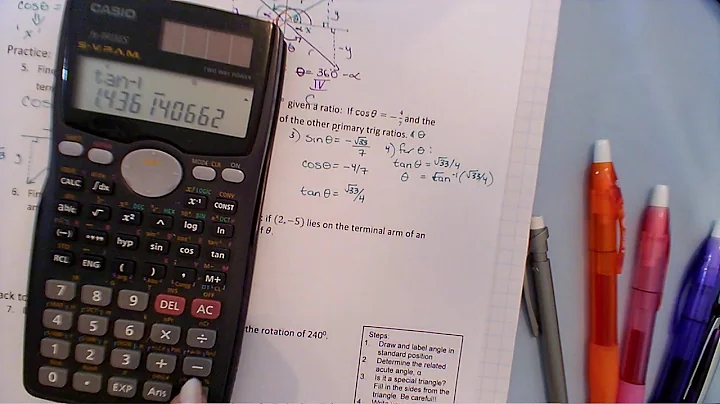 cosθ =
"x"
Practice:
5. Fin
cos
6. Fin
an
7.
CASIO
S-V.P.A.M.
TWO WAY POWER
tan-1
1.436140662
MODE CLR ON
CALC ∫dx x⁻¹ CONST
ab/c √ x² ^ log ln
(-) hyp sin cos tan
RCL ENG ( ) , M+
7 8 9 DEL AC
4 5 6 × ÷
1 2 3 + −
0 · EXP Ans
-y
θ = 360° - α
IV
given a ratio: If cos θ = -4/7 and the
of the other primary trig ratios. & θ
3) sinθ = -√33/7
cosθ = -4/7
tanθ = √33/4
4) for θ:
tanθ = √33/4
θ = tan⁻¹(√33/4)
if (2, −5) lies on the terminal arm of an
f θ.
the rotation of 240⁰.
Steps:
1. Draw and label angle in
standard position
2. Determine the related
acute angle, α
3. Is it a special triangle?
Fill in the sides from the
triangle. Be careful!!